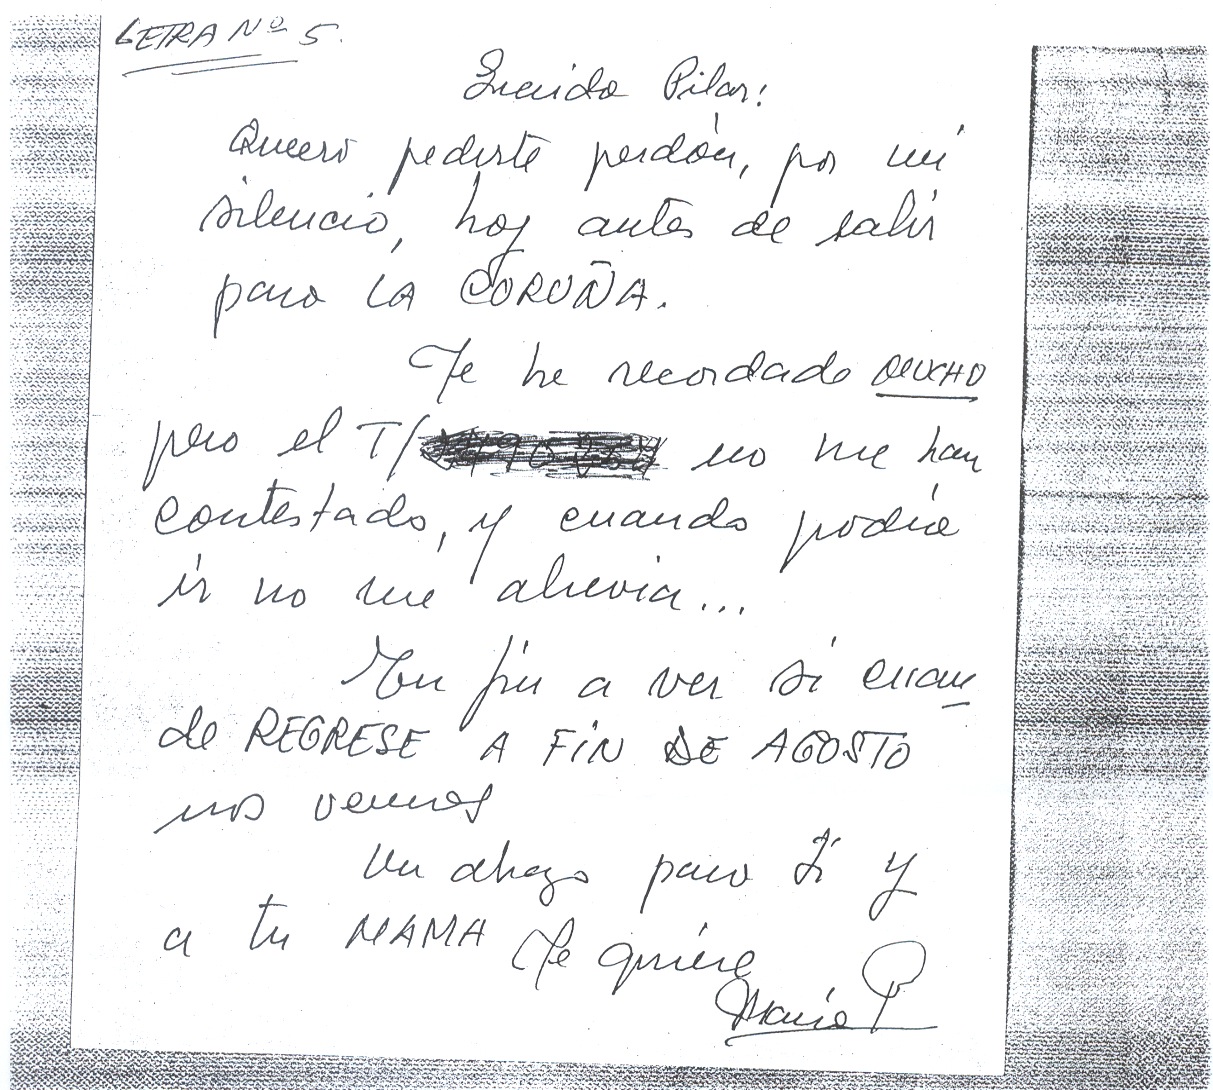 LETRA Nº 5.
Querida Pilar:
Quiero pedirte perdón, por mi
silencio, hoy antes de salir
para LA CORUÑA.
Te he recordado MUCHO
pero el T/ no me han
contestado, y cuando podía
ir no me atrevía...
En fin a ver si cuan
do REGRESE A FIN DE AGOSTO
nos vemos
Un abrazo para ti y
a tu MAMA Te quiere
María P